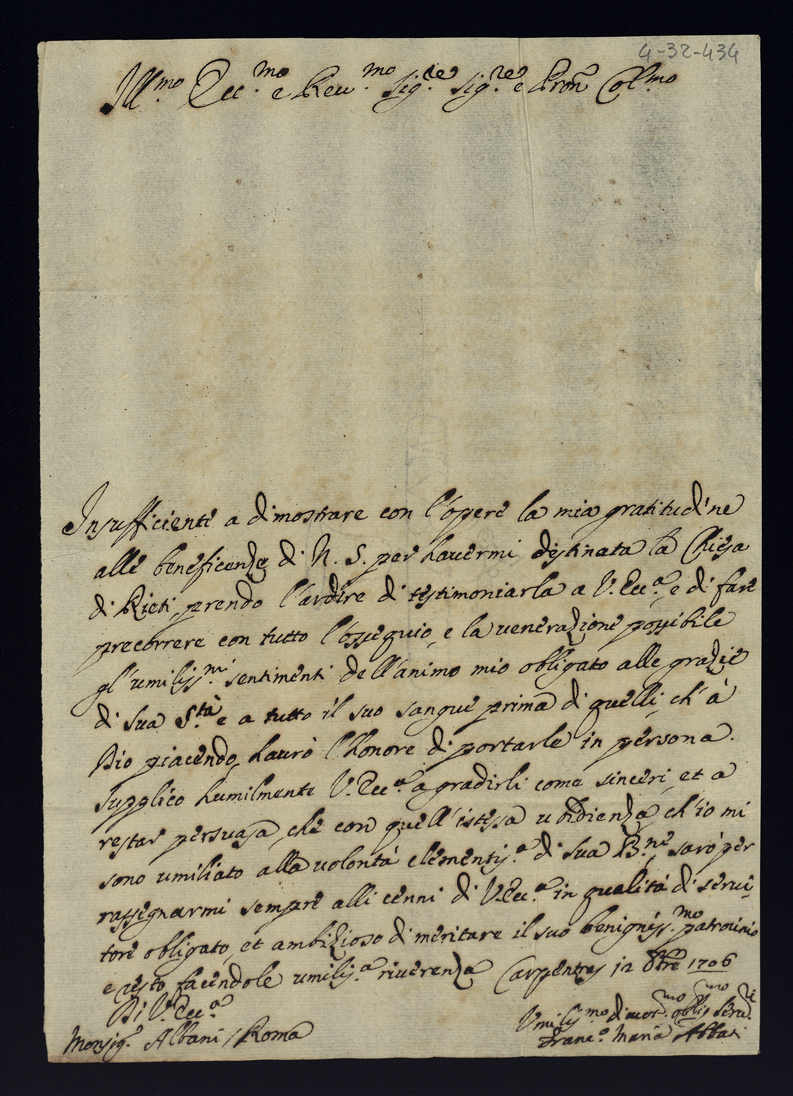 4-32-434
Ill.mo Ecc.mo e Rev.mo Sig.re Sig.re e Pron Col.mo
Insufficiente a dimostrare con l'opere la mia gratitudine
alle beneficenze di N. S. per havermi destinata la Chiesa
di Rieti, prendo l'ardire di testimoniarla a V. Ecc.a, e di fare
precorrere con tutto l'ossequio, e la venerazione possibile
gl'umiliss.mi sentimenti dell'animo mio obligato alle grazie
di Sua S.tà e a tutto il suo sangue prima di quelli, ch'à
Dio piacendo havrò l'honore di portarle in persona.
Supplico humilmente V. Ecc.a a gradirli come sinceri, et a
restar persuasa, che con quell'istessa ubidienza, ch'io mi
sono umiliato alla volontà clementiss.a di Sua B.ne, sarò per
rassegnarmi sempre alli cenni di V. Ecc.a in qualità di servi-
tore obligato, et ambizioso di meritare il suo benigniss.mo patrocinio
e resto facendole umiliss.a riverenza Carpentras 12 8bre 1706
Di V. Ecc.a
Umiliss.mo divot.mo oblig.mo Serv.re
Monsig.r Albani / Roma
Franc.o Maria Abbati